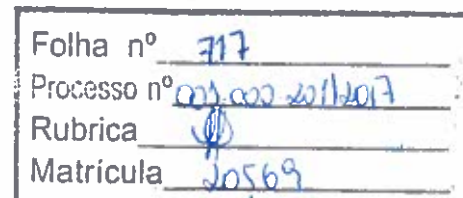 Folha nº 717
Processo nº 001.000.201/2017
Rubrica
Matrícula 20569